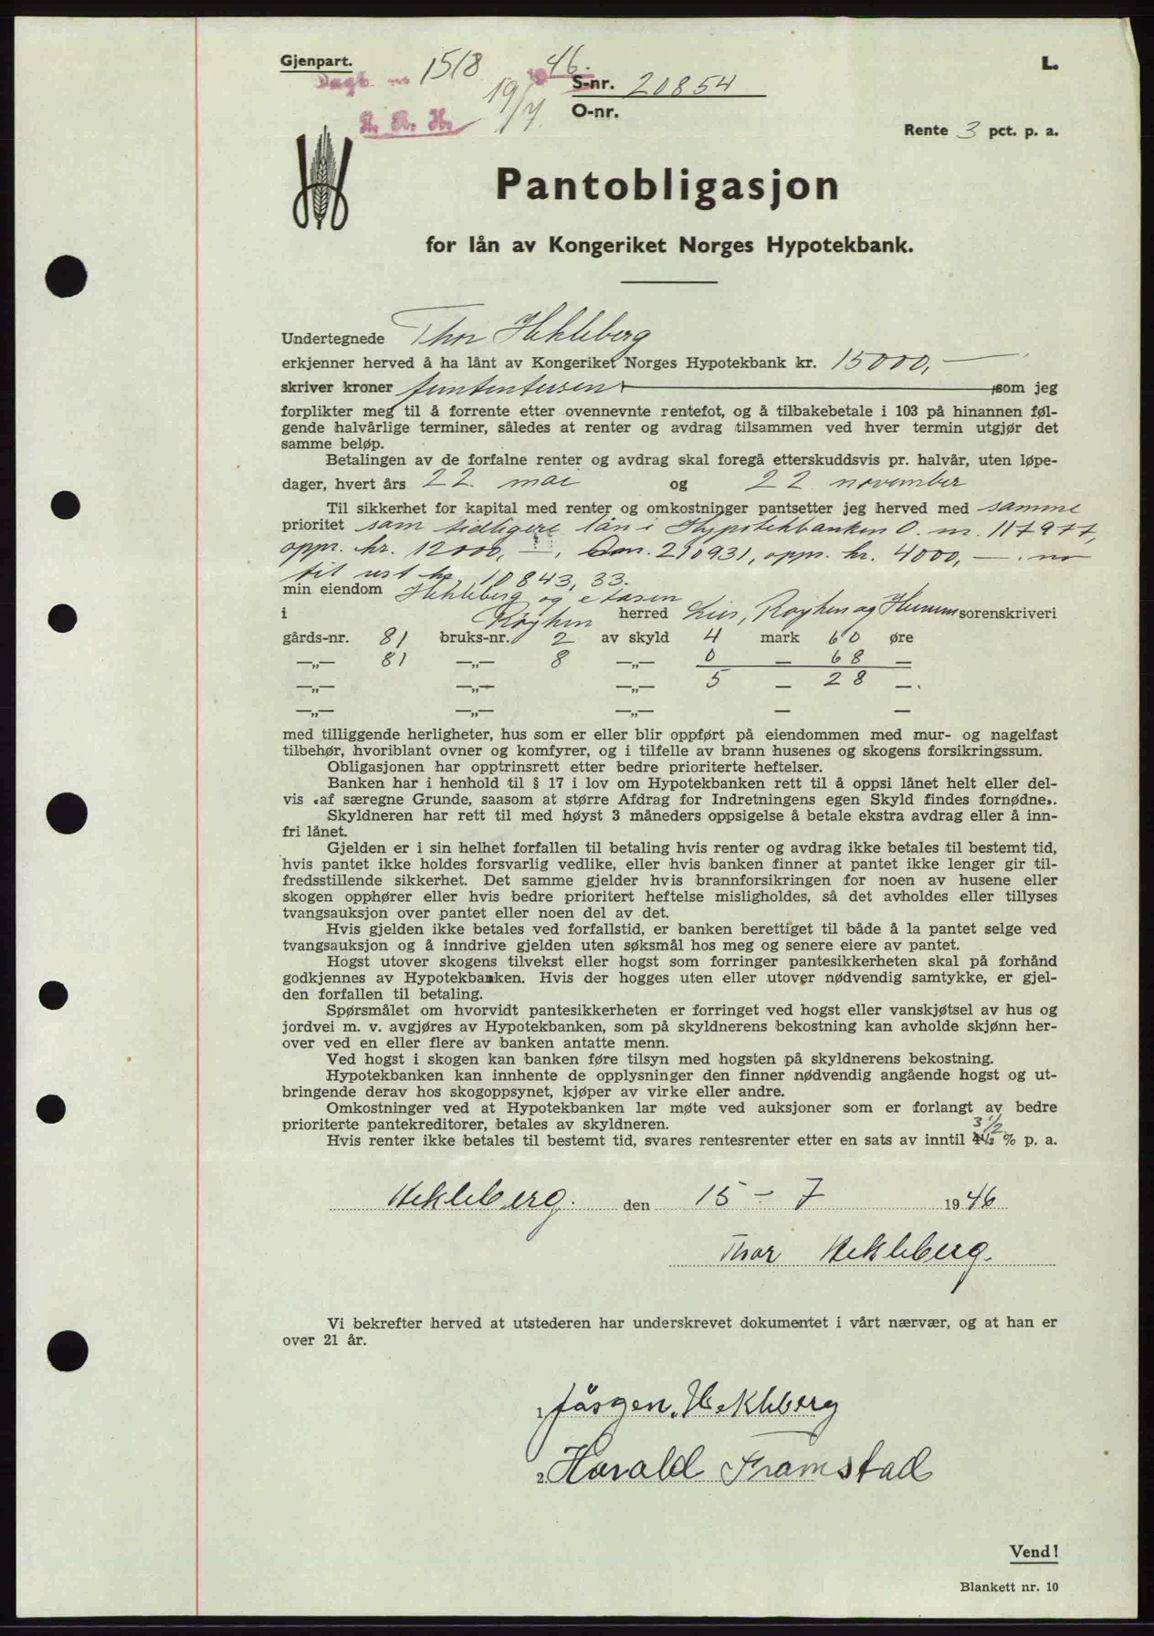 Gjenpart.
L.
Dagb. no 1518 1946.
S-nr. 20854
19/7
O-nr.
L. R. H.
Rente 3 pct. p. a.
Pantobligasjon
for lån av Kongeriket Norges Hypotekbank.
Undertegnede Thor Hekleberg
erkjenner herved å ha lånt av Kongeriket Norges Hypotekbank kr. 15000,—
skriver kroner femtentusen ,som jeg
forplikter meg til å forrente etter ovennevnte rentefot, og å tilbakebetale i 103 på hinannen føl-
gende halvårlige terminer, således at renter og avdrag tilsammen ved hver termin utgjør det
samme beløp.
Betalingen av de forfalne renter og avdrag skal foregå etterskuddsvis pr. halvår, uten løpe-
dager, hvert års 22. mai og 22 november
Til sikkerhet for kapital med renter og omkostninger pantsetter jeg herved med samme
prioritet som tidligere lån i Hypotekbanken O. nr. 117977,
oppr. kr. 12000,—, S.nr. 210931, oppr. kr. 4000,—. nu
til rest kr. 10843,33.
min eiendom Hekleberg og etasen
i Røyken herred Lier, Røyken og Hurum sorenskriveri
gårds-nr. 81 bruks-nr. 2 av skyld 4 mark 60 øre
—„— 81 —„— 8 —„— 0 — 68 —
—„— —„— —„— 5 — 28 —.
—„— —„— —„— — —
med tilliggende herligheter, hus som er eller blir oppført på eiendommen med mur- og nagelfast
tilbehør, hvoriblant ovner og komfyrer, og i tilfelle av brann husenes og skogens forsikringssum.
Obligasjonen har opptrinsrett etter bedre prioriterte heftelser.
Banken har i henhold til § 17 i lov om Hypotekbanken rett til å oppsi lånet helt eller del-
vis «af særegne Grunde, saasom at større Afdrag for Indretningens egen Skyld findes fornødne».
Skyldneren har rett til med høyst 3 måneders oppsigelse å betale ekstra avdrag eller å inn-
fri lånet.
Gjelden er i sin helhet forfallen til betaling hvis renter og avdrag ikke betales til bestemt tid,
hvis pantet ikke holdes forsvarlig vedlike, eller hvis banken finner at pantet ikke lenger gir til-
fredsstillende sikkerhet. Det samme gjelder hvis brannforsikringen for noen av husene eller
skogen opphører eller hvis bedre prioritert heftelse misligholdes, så det avholdes eller tillyses
tvangsauksjon over pantet eller noen del av det.
Hvis gjelden ikke betales ved forfallstid, er banken berettiget til både å la pantet selge ved
tvangsauksjon og å inndrive gjelden uten søksmål hos meg og senere eiere av pantet.
Hogst utover skogens tilvekst eller hogst som forringer pantesikkerheten skal på forhånd
godkjennes av Hypotekbanken. Hvis der hogges uten eller utover nødvendig samtykke, er gjel-
den forfallen til betaling.
Spørsmålet om hvorvidt pantesikkerheten er forringet ved hogst eller vanskjøtsel av hus og
jordvei m. v. avgjøres av Hypotekbanken, som på skyldnerens bekostning kan avholde skjønn her-
over ved en eller flere av banken antatte menn.
Ved hogst i skogen kan banken føre tilsyn med hogsten på skyldnerens bekostning.
Hypotekbanken kan innhente de opplysninger den finner nødvendig angående hogst og ut-
bringende derav hos skogoppsynet, kjøper av virke eller andre.
Omkostninger ved at Hypotekbanken lar møte ved auksjoner som er forlangt av bedre
prioriterte pantekreditorer, betales av skyldneren.
Hvis renter ikke betales til bestemt tid, svares rentesrenter etter en sats av inntil 3 1/2 % p. a.
Hekleberg. den 15 – 7 1946
Thor Hekleberg.
Vi bekrefter herved at utstederen har underskrevet dokumentet i vårt nærvær, og at han er
over 21 år.
1. Jörgen. Hekleberg
2. Harald Framstad
Vend!
Blankett nr. 10